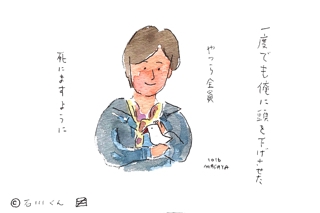 一度でも俺に頭を下げさせた
やつら全員
死にますように
1016
MACHIA
© 石川くん